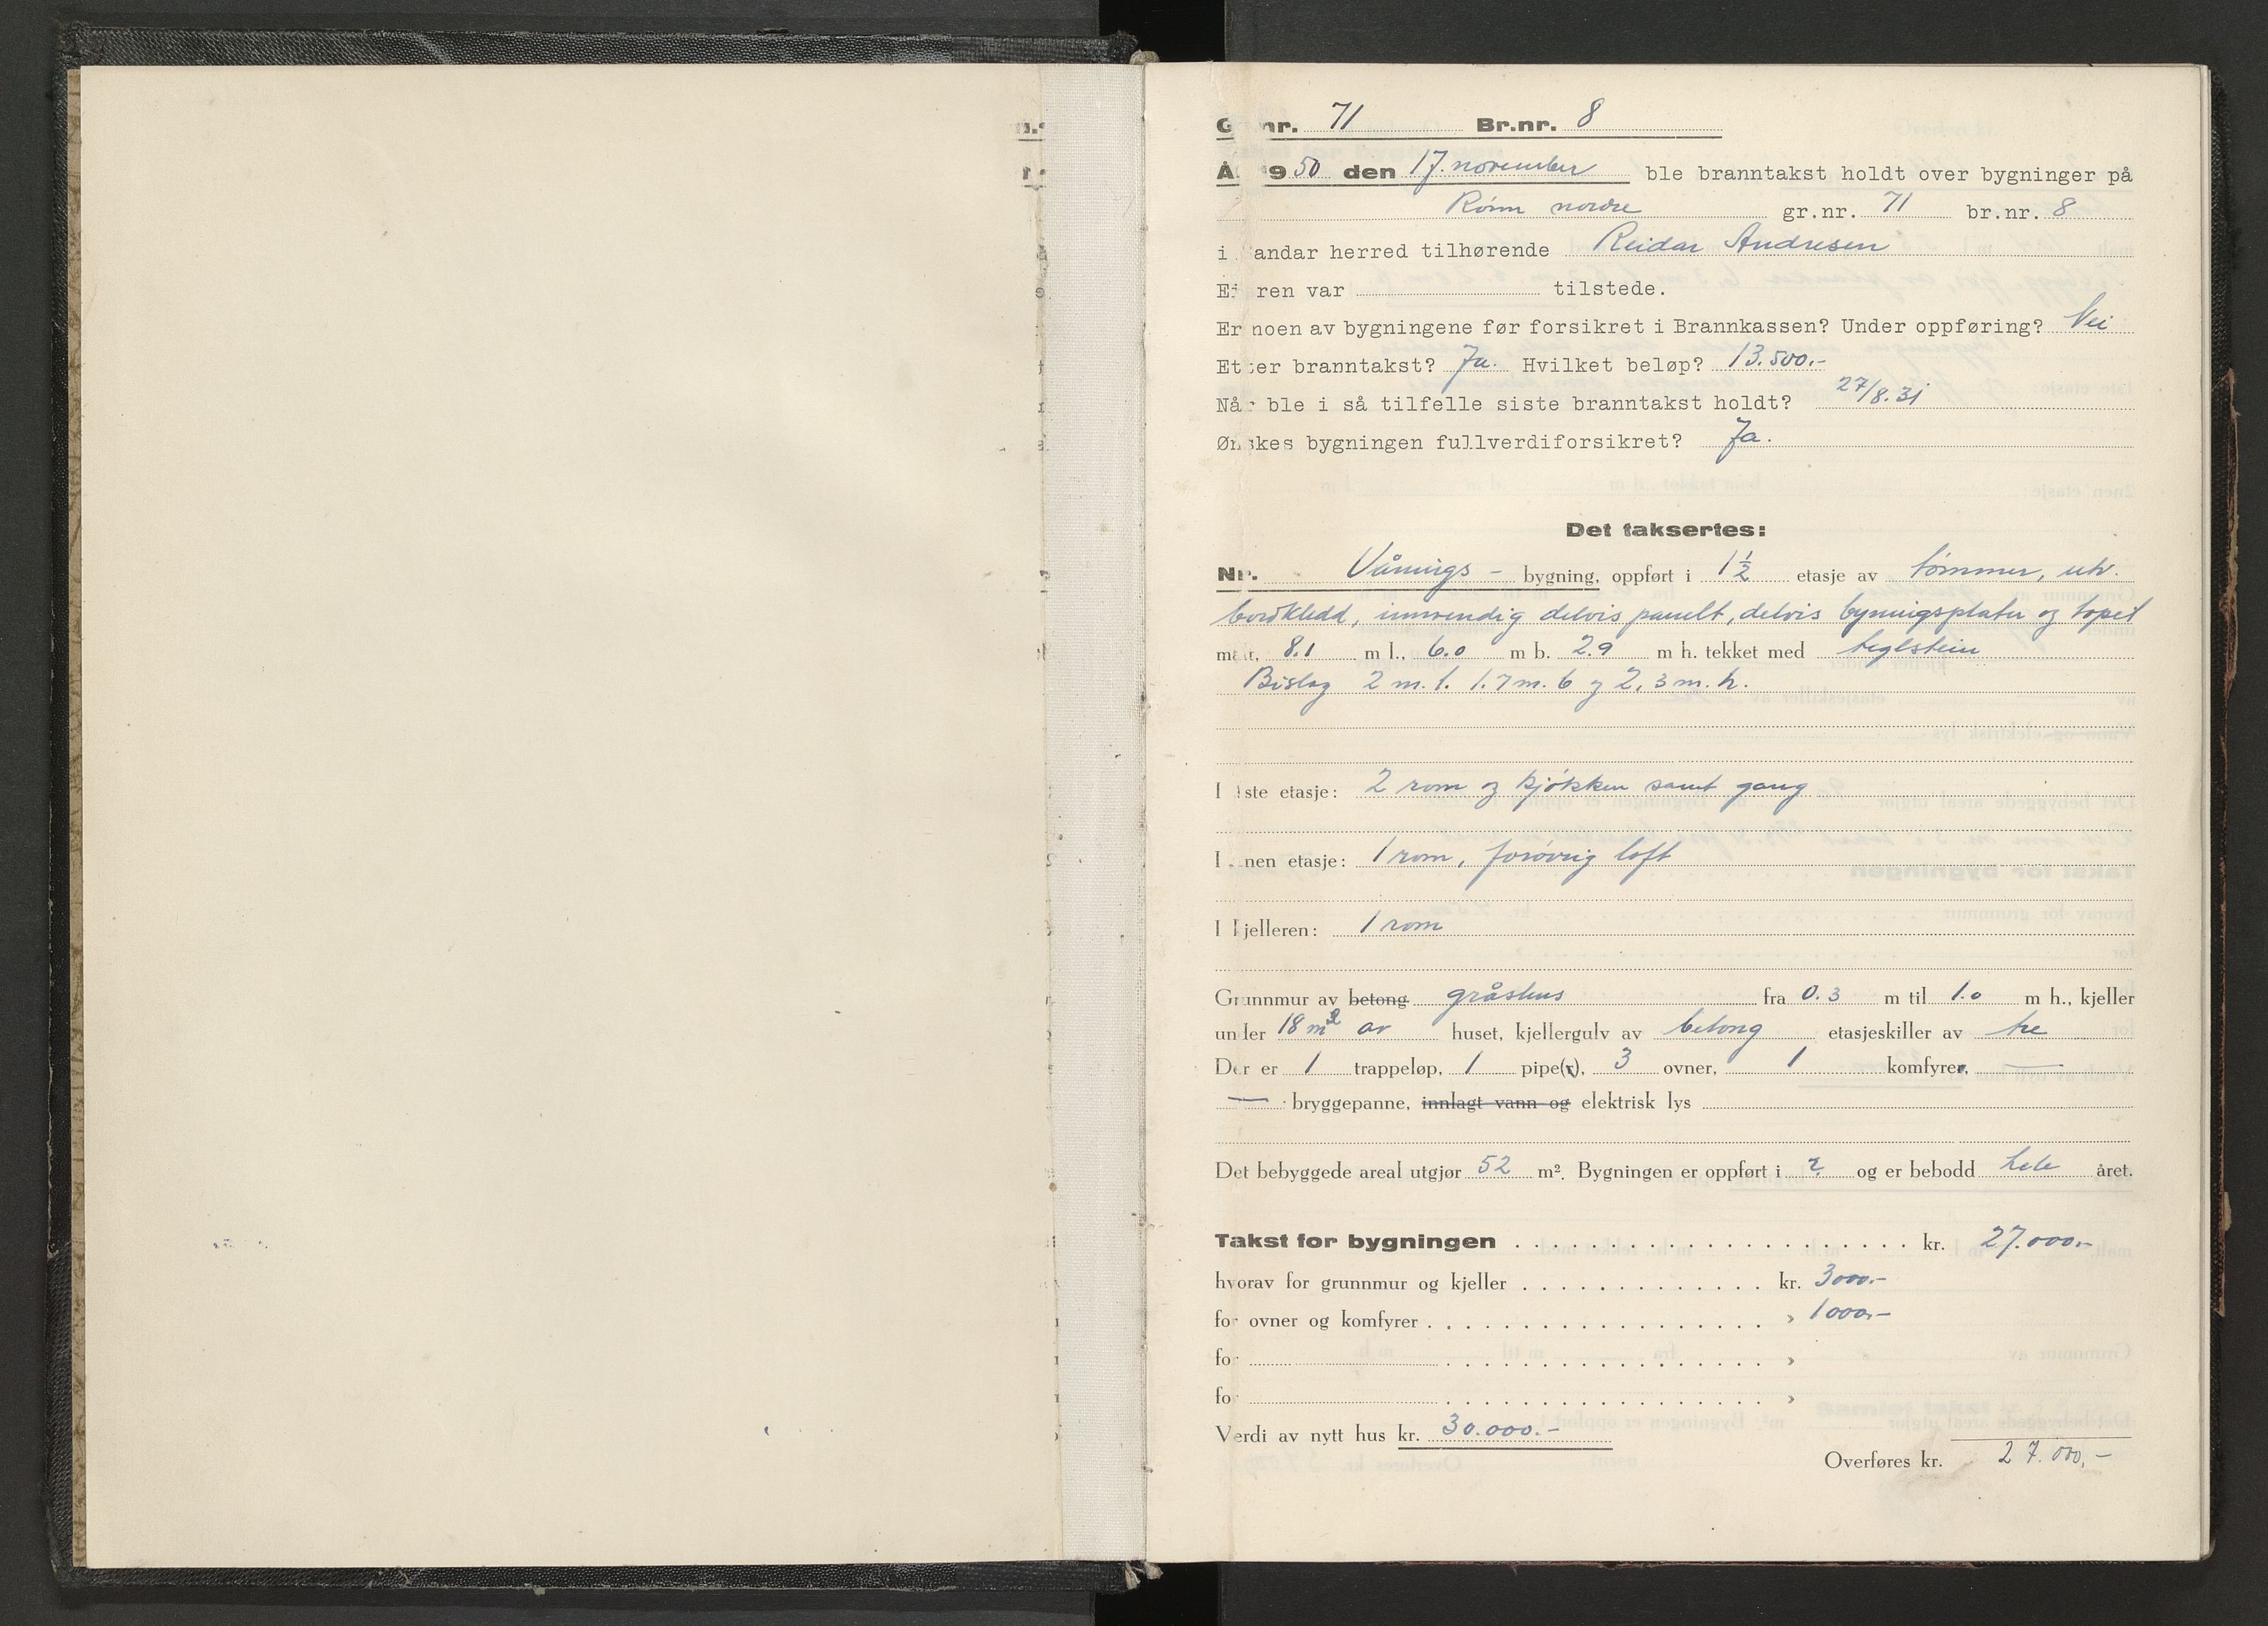 Gr.nr. 71 Br.nr. 8
År 1950 den 17. november ble branntakst holdt over bygninger på
Rømn nordre gr.nr. 71 br.nr. 8
i Sandar herred tilhørende Reidar Andresen
Eieren var tilstede.
Er noen av bygningene før forsikret i Brannkassen? Under oppføring? Nei
Etter branntakst? Ja. Hvilket beløp? 13.500.-
Når ble i så tilfelle siste branntakst holdt? 27/8.31
Ønskes bygningen fullverdiforsikret? Ja.
Det taksertes:
Nr. Vånings- bygning, oppført i 1½ etasje av tømmer, utv.
bordkledd, innvendig delvis panelt, delvis bygningsplater og tapet
målt, 8.1 m l., 6.0 m b. 2.9 m h. tekket med teglstein
Bislag 2 m. l. 1.7 m. b og 2,3 m. h.
I 1ste etasje: 2 rom og kjøkken samt gang
I 2nen etasje: 1 rom, forøvrig loft
I kjelleren: 1 rom
Grunnmur av betong gråstens fra 0.3 m til 1.0 m h., kjeller
under 18 m² av huset, kjellergulv av betong etasjeskiller av tre
Der er 1 trappeløp, 1 pipe(r), 3 ovner, 1 komfyrer, —
— bryggepanne, innlagt vann og elektrisk lys
Det bebyggede areal utgjør 52 m². Bygningen er oppført i ? og er bebodd hele året.
Takst for bygningen kr. 27.000.-
hvorav for grunnmur og kjeller kr. 3000.-
for ovner og komfyrer » 1000.-
for »
for »
Verdi av nytt hus kr. 30.000.-
Overføres kr. 27.000,-